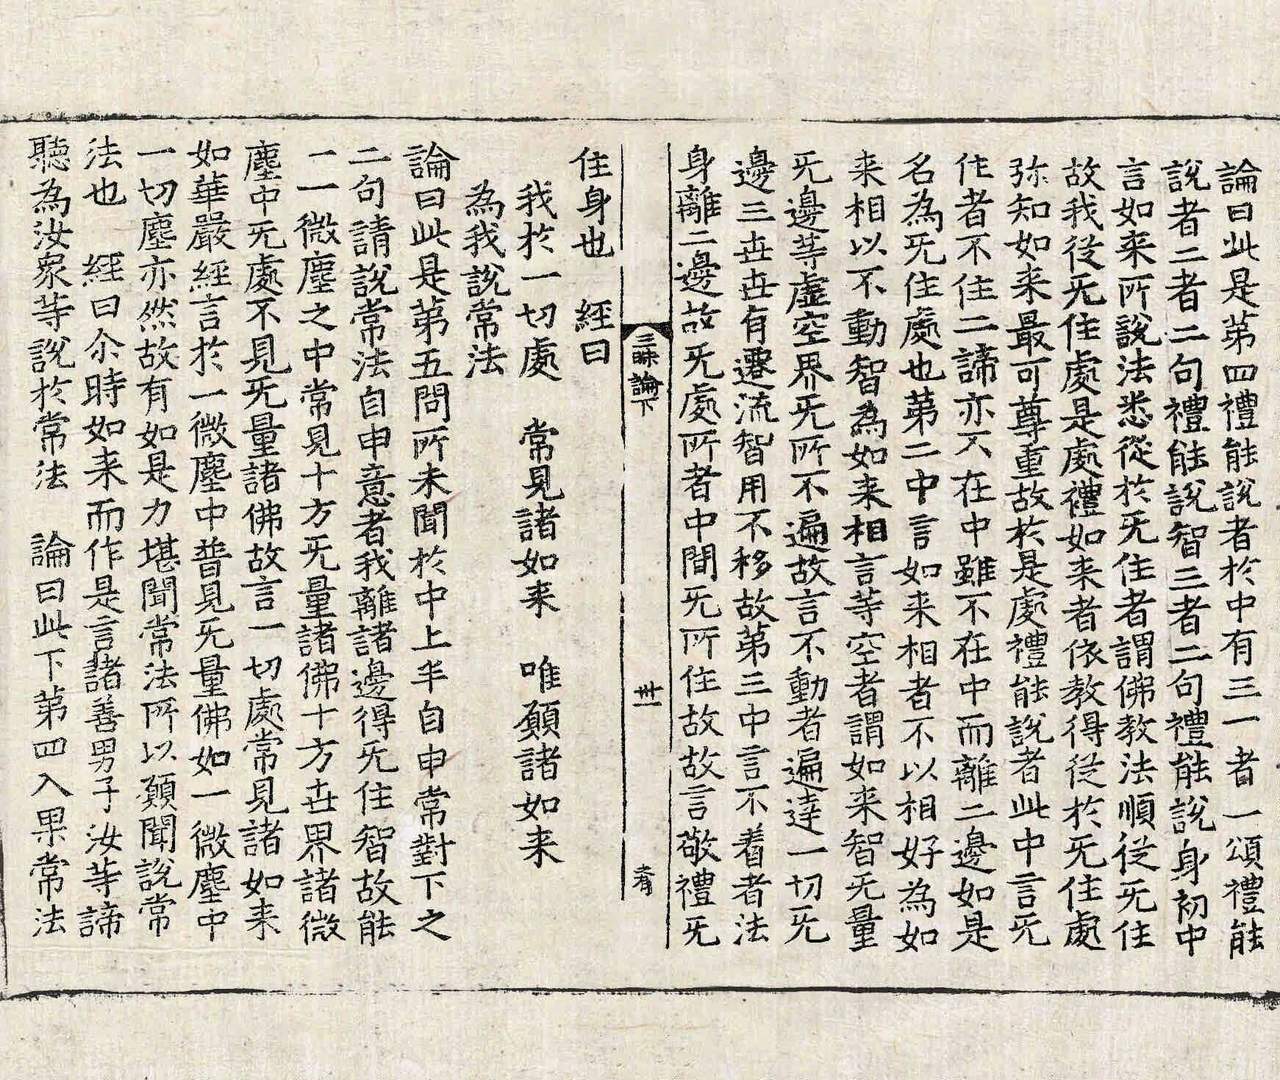 論曰此是第四禮能說者於中有三一者一頌禮能
說者二者二句禮能說智三者二句禮能說身初中
言如来所說法悉從於旡住者謂佛教法順從旡住
故我從旡住處是處禮如来者依教得從於旡住處
弥知如来最可尊重故於是處禮能說者此中言旡
住者不住二諦亦不在中雖不在中而離二邊如是
名為旡住處也苐二中言如来相者不以相好為如
来相以不動智為如来相言等空者謂如来智旡量
旡邊等虛空界旡所不遍故言不動者遍達一切旡
邊三世世有遷流智用不移故苐三中言不着者法
身離二邊故旡處所者中間旡所住故故言敬禮旡
三昧論下 卅一 肴
住身也 經曰
我於一切處 常見諸如来 唯願諸如来
為我說常法
論曰此是苐五問所未聞於中上半自申常對下之
二句請說常法自申意者我離諸邊得旡住智故能
一一微塵之中常見十方旡量諸佛十方世界諸微
塵中旡處不見旡量諸佛故言一切處常見諸如来
如華嚴經言於一微塵中普見旡量佛如一微塵中
一切塵亦然故有如是力堪聞常法所以願聞說常
法也 經曰尒時如来而作是言諸善男子汝等諦
聽為汝衆等說於常法 論曰此下苐四入果常法